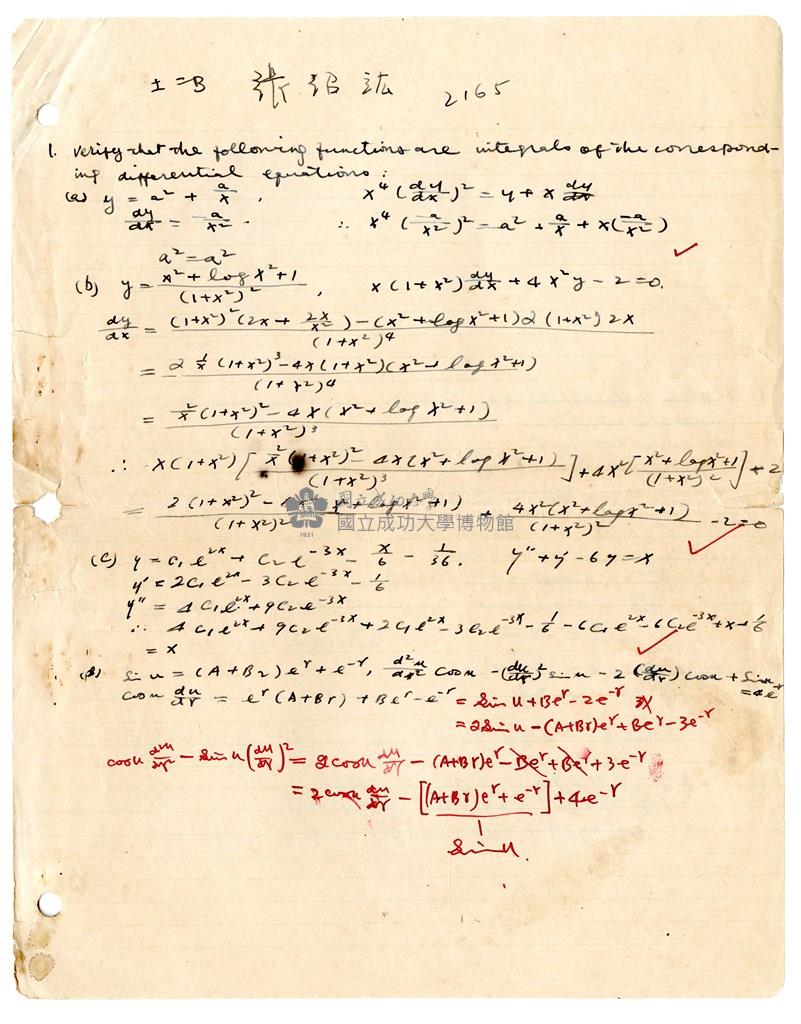 土=B 張紹浤 2165
1. Verify that the following functions are integrals of the correspond-
ing differential equations:
(a) y = a² + a/x , x⁴(dy/dx)² = y + x dy/dx
dy/dx = -a/x² ∴ x⁴(-a/x²)² = a² + a/x + x(-a/x²)
a² = a²
(b) y = (x² + log x² + 1)/(1+x²)² , x(1+x²) dy/dx + 4x²y - 2 = 0.
dy/dx = ((1+x²)²(2x + 2x/x²) - (x² + log x² + 1) 2(1+x²) 2x)/(1+x²)⁴
= (2 1/x (1+x²)³ - 4x(1+x²)(x² + log x² + 1))/(1+x²)⁴
= (2/x (1+x²)² - 4x(x² + log x² + 1))/(1+x²)³
∴ x(1+x²)[(2/x (1+x²)² - 4x(x² + log x² + 1))/(1+x²)³] + 4x²[(x² + log x² + 1)/(1+x²)²] - 2
= (2(1+x²)² - 4x²(x² + log x² + 1))/(1+x²)² + 4x²(x² + log x² + 1)/(1+x²)² - 2 = 0
國立成功大學
國立成功大學博物館
1931
(c) y = c₁e²ˣ + c₂e⁻³ˣ - x/6 - 1/36. y″ + y′ - 6y = x
y′ = 2c₁e²ˣ - 3c₂e⁻³ˣ - 1/6
y″ = 4c₁e²ˣ + 9c₂e⁻³ˣ
∴ 4c₁e²ˣ + 9c₂e⁻³ˣ + 2c₁e²ˣ - 3c₂e⁻³ˣ - 1/6 - 6c₁e²ˣ - 6c₂e⁻³ˣ + x + 1/6
= x
(d) sin u = (A+Br)eʳ + e⁻ʳ, d²u/dr² cos u - (du/dr)² sin u - 2(du/dr) cos u + sin u = 4e⁻ʳ
cos u du/dr = eʳ(A+Br) + Beʳ - e⁻ʳ = sin u + Beʳ - 2e⁻ʳ 或
= 2 sin u - (A+Br)eʳ + Beʳ - 3e⁻ʳ
cos u d²u/dr² - sin u (du/dr)² = 2 cos u du/dr - (A+Br)eʳ - Beʳ + Beʳ + 3e⁻ʳ
= 2 cos u du/dr - [(A+Br)eʳ + e⁻ʳ] + 4e⁻ʳ
sin u.